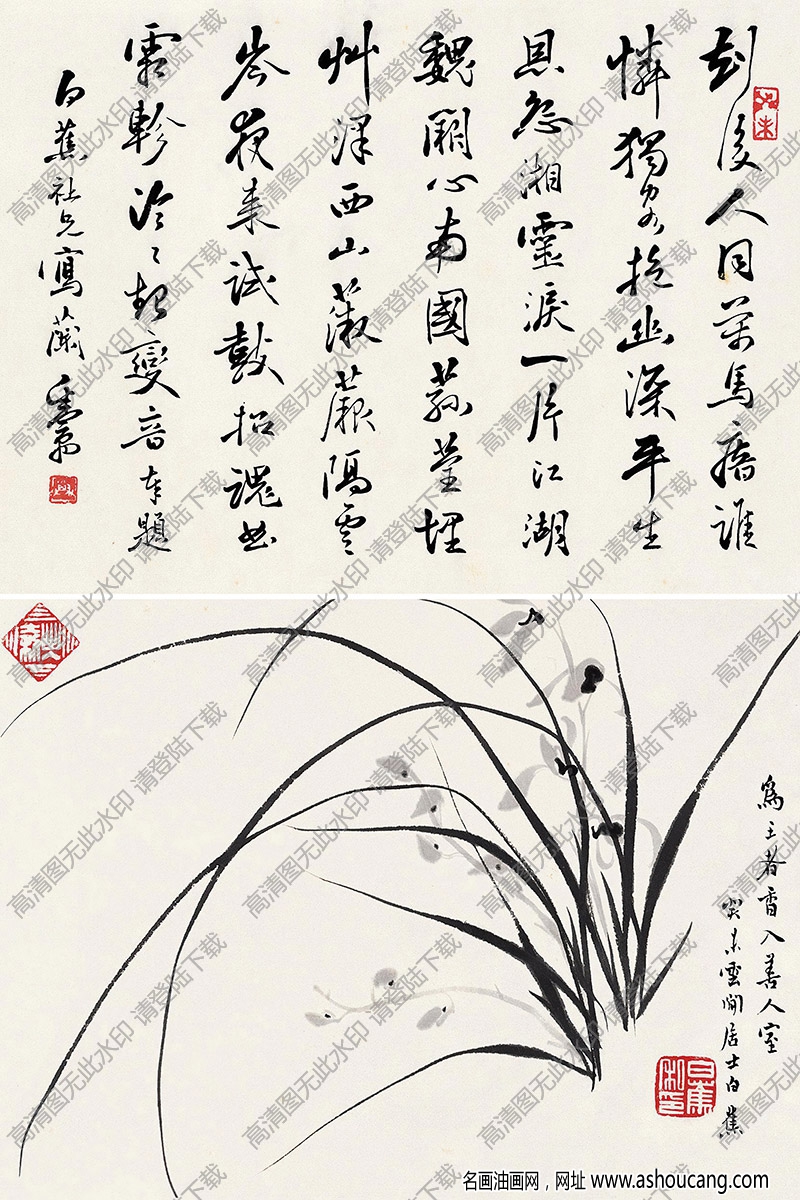 劫後人同萬馬瘖誰
憐獨客抱幽深平生
恩怨湘靈淚一片江湖
魏闕心南國蓀荃埋
艸澤西山薇蕨隔雲
岑夜來試鼓招魂曲
霜軫泠〻起變音奉題
白蕉社兄寫蘭
為王者香入善人室
癸未雲間居士白蕉
白蕉私印
高清图无此水印 请登陆下载
名画油画网，网址 www.ashoucang.com